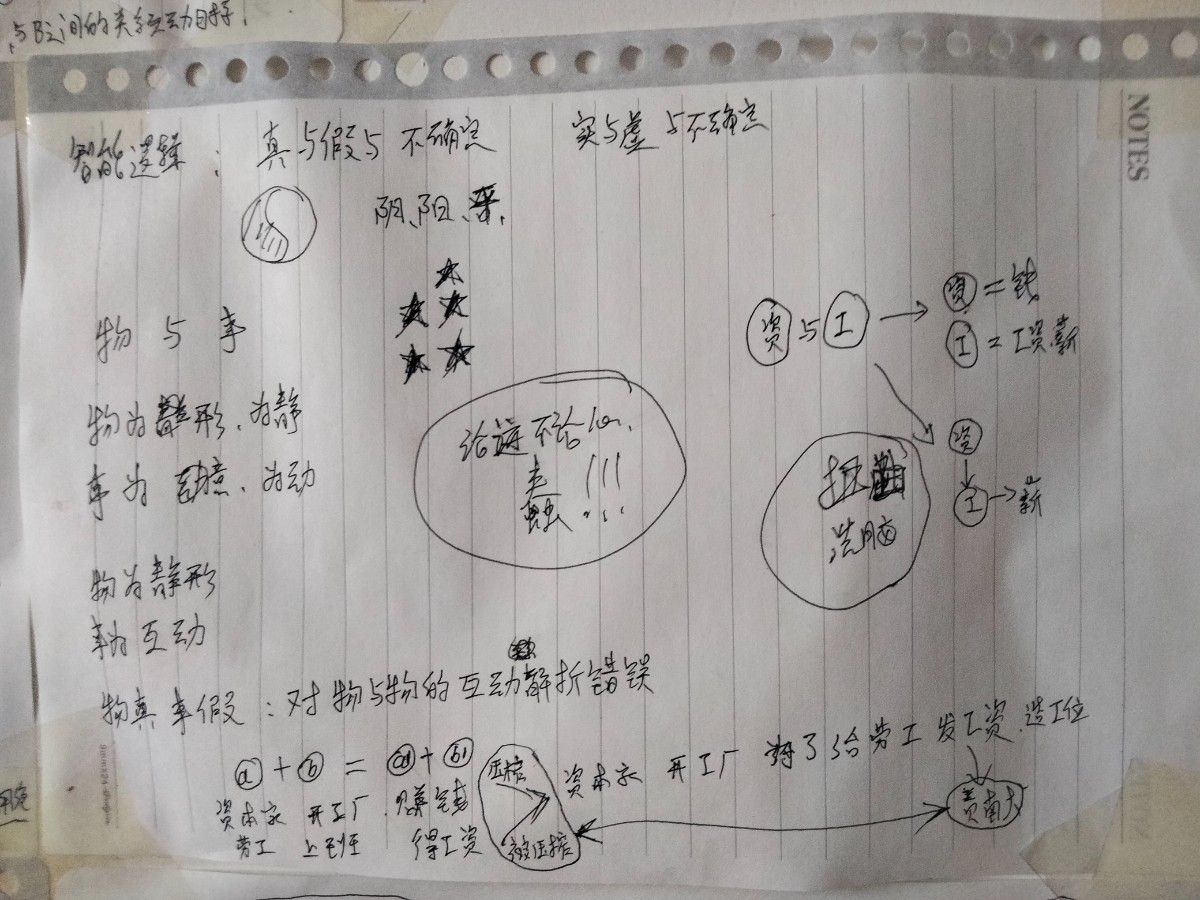 与B之间的关系互动
NOTES
智能逻辑：真与假与不确定 实与虚与不确定
阴、阳、
物与事
资与工 → 资=钱
工=工资.薪
物为 形、为静
事为 意、为动
给 不给
蠢 !!!
资
工→薪
洗脑
物为静形
事为互动
物真事假：对物与物的互动解折错误
a + b = a1 + b1
压榨
资本家 开工厂 给劳工发工资.造工位
资本家 开工厂 赚钱
劳工 上班 得工资
被压榨